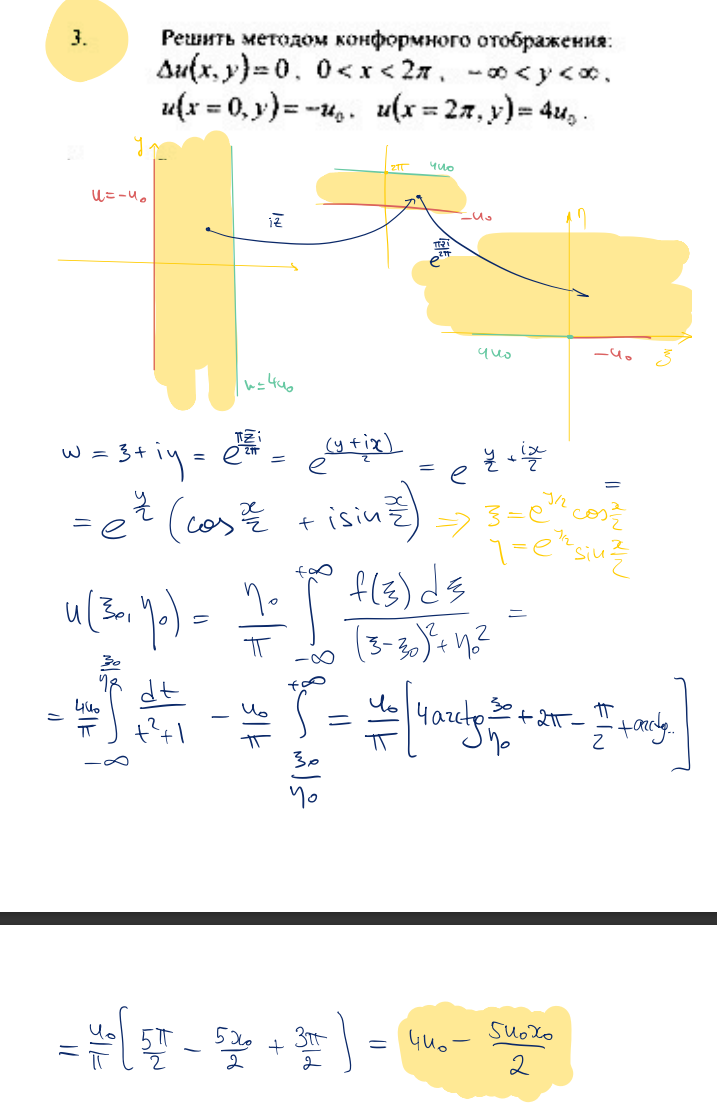 3.
Решить методом конформного отображения:
Δu(x, y) = 0, 0 < x < 2π, −∞ < y < ∞,
u(x = 0, y) = −u₀, u(x = 2π, y) = 4u₀.
y
u=−u₀
u=4u₀
iz̄
2π 4u₀
−u₀
e^(πz̄i/2π)
η
4u₀ −u₀ ξ
w = ξ + iη = e^(πz̄i/2π) = e^((y+ix)/2) = e^(y/2 + ix/2) =
= e^(y/2) (cos x/2 + i sin x/2) ⇒ ξ = e^(y/2) cos x/2
η = e^(y/2) sin x/2
u(ξ₀, η₀) = η₀/π ∫_{−∞}^{+∞} f(ξ) dξ / ((ξ−ξ₀)² + η₀²) =
= 4u₀/π ∫_{−∞}^{ξ₀/η₀} dt/(t²+1) − u₀/π ∫_{ξ₀/η₀}^{+∞} = u₀/π [4arctg ξ₀/η₀ + 2π − π/2 + arctg..]
= u₀/π (5π/2 − 5x₀/2 + 3π/2) = 4u₀ − 5u₀x₀/2